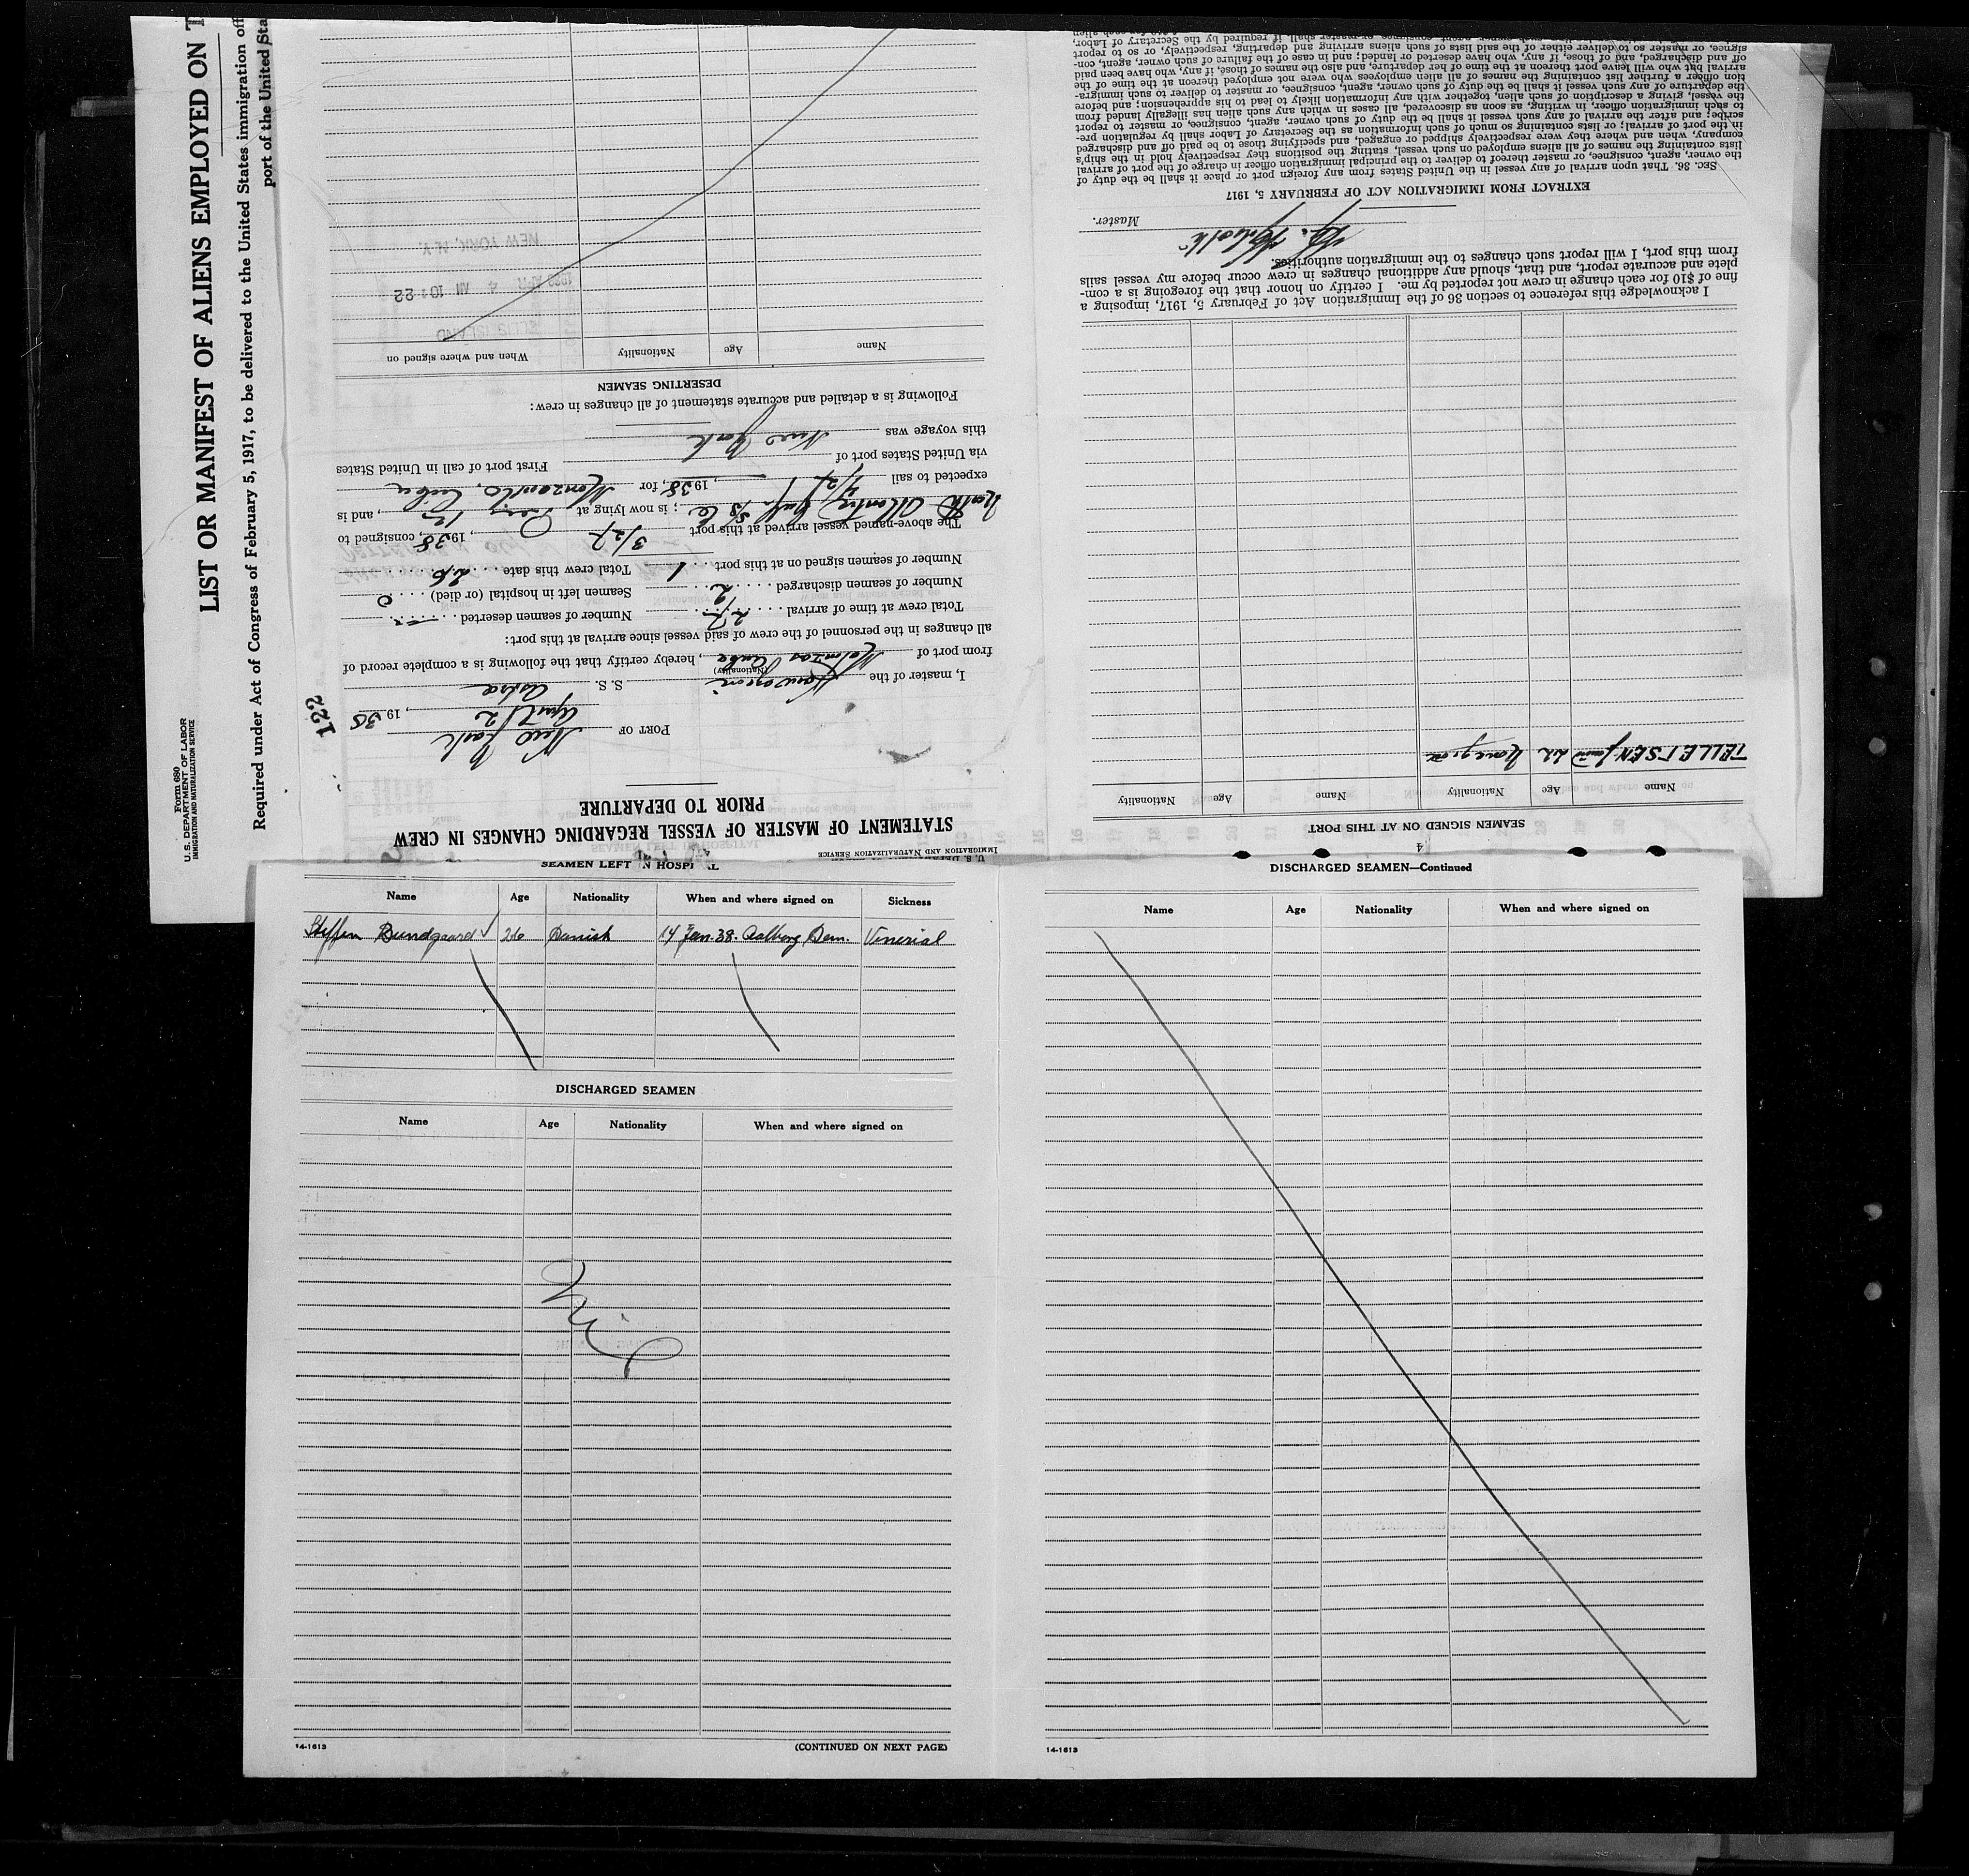 Form 680
U. S. DEPARTMENT OF LABOR
IMMIGRATION AND NATURALIZATION SERVICE
LIST OR MANIFEST OF ALIENS EMPLOYED ON T
Required under Act of Congress of February 5, 1917, to be delivered to the United States immigration off
port of the United Sta
122
U. S. DEPARTMENT OF LABOR
IMMIGRATION AND NATURALIZATION SERVICE
STATEMENT OF MASTER OF VESSEL REGARDING CHANGES IN CREW
PRIOR TO DEPARTURE
PORT OF New York
April 2, 1938
I, master of the Norwegian S. S.
(Nationality)
from port of Cuba, hereby certify that the following is a complete record of
all changes in the personnel of the crew of said vessel since arrival at this port:
Total crew at time of arrival 27 Number of seamen deserted
Number of seamen discharged 2 Seamen left in hospital (or died) 0
Number of seamen signed on at this port 1 Total crew this date 26
The above-named vessel arrived at this port 3/27, 1938, consigned to
North Atlantic & Gulf SS Co; is now lying at Pier, and is
expected to sail 4/2, 1938, for Manzanillo, Cuba
via United States port of First port of call in United States
this voyage was New York
Following is a detailed and accurate statement of all changes in crew:
DESERTING SEAMEN
Name Age Nationality When and where signed on
ELLIS ISLAND
1938 APR 4 AM 10:22
NEW YORK, N.Y.
4
SEAMEN SIGNED ON AT THIS PORT
Name Age Nationality Name Age Nationality
TELLEFSEN 22 Norwegian
I acknowledge this reference to section 36 of the Immigration Act of February 5, 1917, imposing a
fine of $10 for each change in crew not reported by me. I certify on honor that the foregoing is a com-
plete and accurate report, and that, should any additional changes in crew occur before my vessel sails
from this port, I will report such changes to the immigration authorities.
Master.
EXTRACT FROM IMMIGRATION ACT OF FEBRUARY 5, 1917
SEC. 36. That upon arrival of any vessel in the United States from any foreign port or place it shall be the duty of
the owner, agent, consignee, or master thereof to deliver to the principal immigration officer in charge of the port of arrival
lists containing the names of all aliens employed on such vessel, stating the positions they respectively hold in the ship's
company, when and where they were respectively shipped or engaged, and specifying those to be paid off and discharged
in the port of arrival; or lists containing so much of such information as the Secretary of Labor shall by regulation pre-
scribe; and after the arrival of any such vessel it shall be the duty of such owner, agent, consignee, or master to report
to such immigration officer, in writing, as soon as discovered, all cases in which any such alien has illegally landed from
the vessel, giving a description of such alien, together with any information likely to lead to his apprehension; and before
the departure of any such vessel it shall be the duty of such owner, agent, consignee, or master to deliver to such immigra-
tion officer a further list containing the names of all alien employees who were not employed thereon at the time of the
arrival but who will leave port thereon at the time of her departure, and also the names of those, if any, who have been paid
off and discharged, and of those, if any, who have deserted or landed; and in case of the failure of such owner, agent, con-
signee, or master so to deliver either of the said lists of such aliens arriving and departing, respectively, or so to report
SEAMEN LEFT IN HOSPITAL
Name Age Nationality When and where signed on Sickness
Steffen Bundgaard 26 Danish 14 Jan. 38. Aalborg Den. Venerial
DISCHARGED SEAMEN
Name Age Nationality When and where signed on
Nil
14-1613 (CONTINUED ON NEXT PAGE)
DISCHARGED SEAMEN—Continued
Name Age Nationality When and where signed on
14-1613